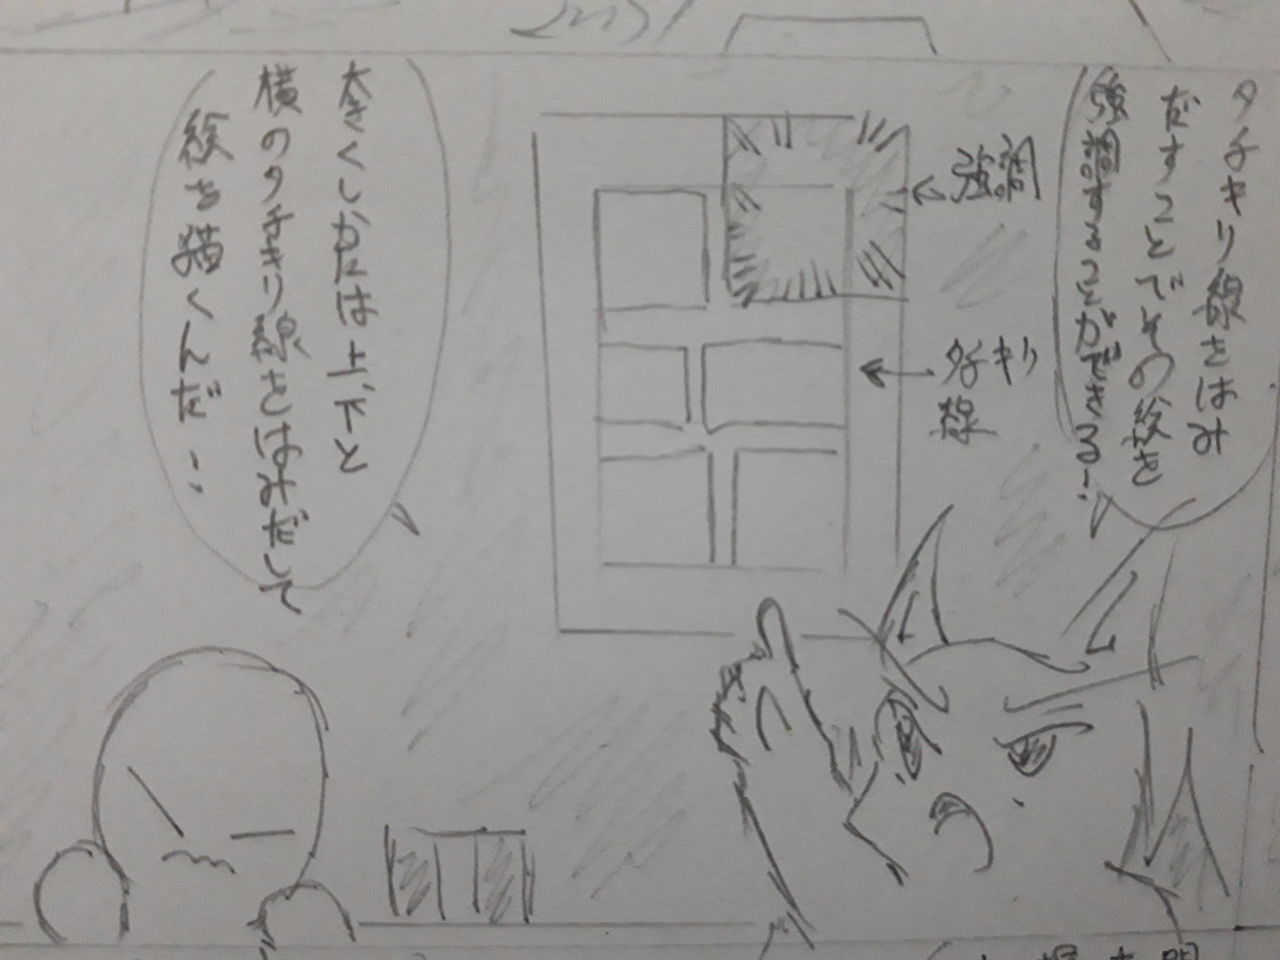 タチキリ線をはみ
だすことでその絵を
強調することができる!
強調
タチキリ
線
大きくしかたは上、下と
横のタチキリ線をはみだして
絵を描くんだ!